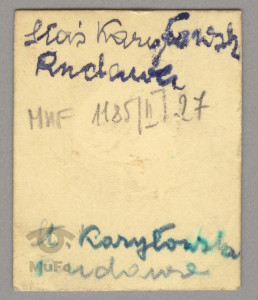 Staś Karyłowski
Rudawa
MHF 1185/II/27
St. Karyłowska
Rudawa
MuFo